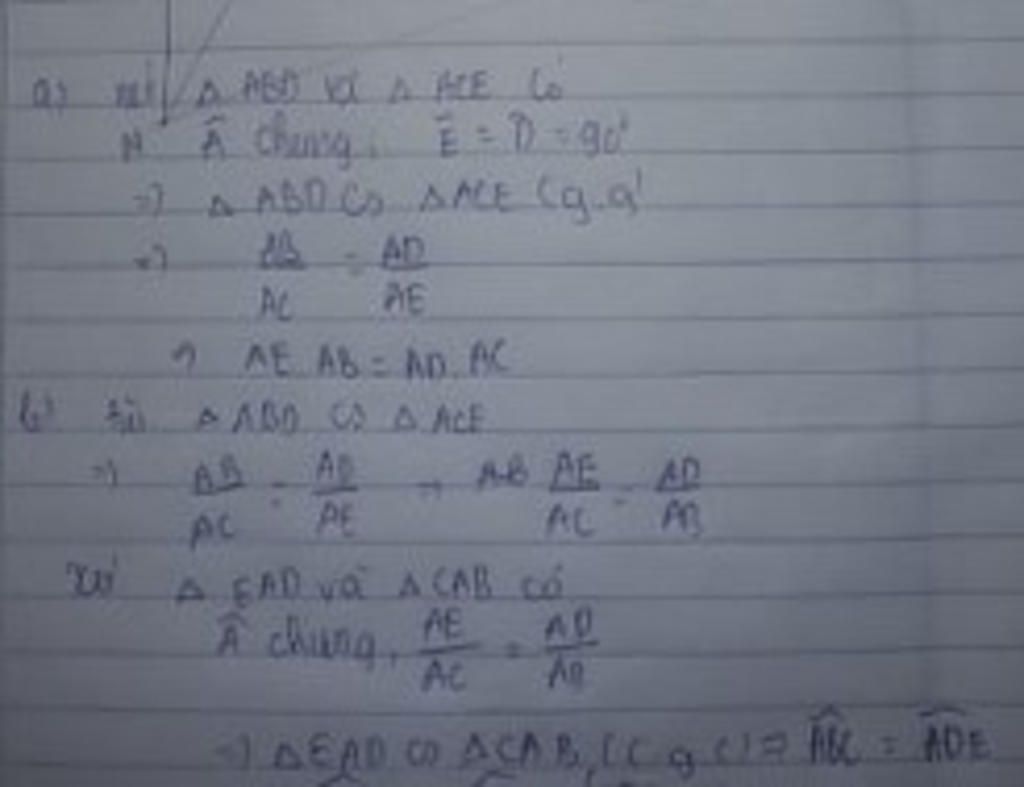 a) xét Δ ABD và Δ ACE có
Â chung, Ê = D̂ = 90°
=> Δ ABD ∽ Δ ACE (g.g)
=> AB/AC = AD/AE
=> AE AB = AD. AC
b) Δ ABD ∽ Δ ACE
=> AB/AC = AD/AE → AE/AC = AD/AB
xét Δ EAD và Δ CAB có
Â chung, AE/AC = AD/AB
=> Δ EAD ∽ Δ CAB, (c g c) => ABC = ADE